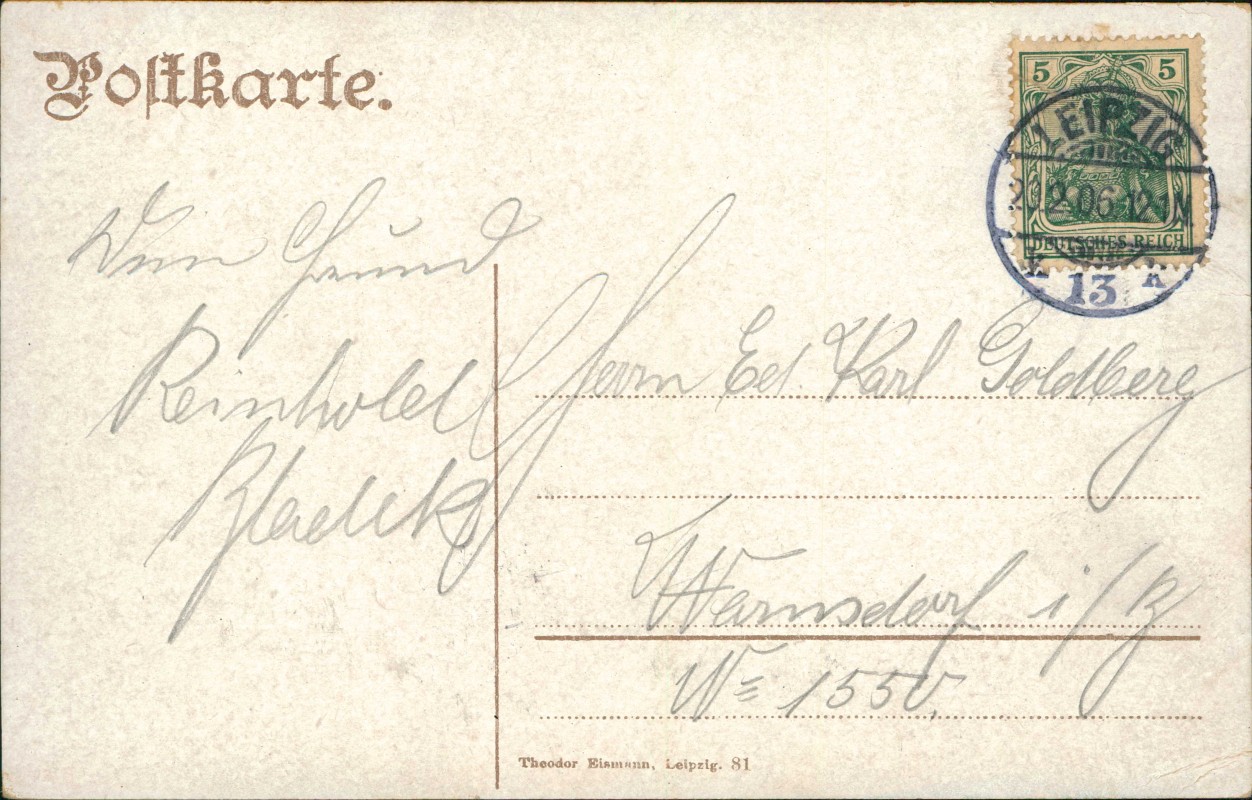 Postkarte.
5 5
LEIPZIG
2.12.06.12-1N
DEUTSCHES REICH
* 13 K
Dein Freund
Reinhold
Herrn Ed. Karl Goldberg
Warnsdorf i/B
No 1550.
Theodor Eismann, Leipzig. 81